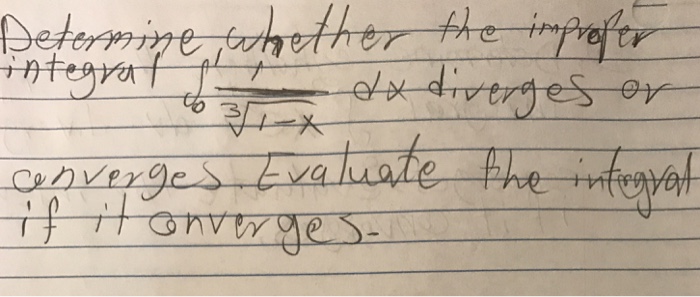 Determine whether the improper
integral ∫₀¹ 1/∛(1-x) dx diverges or
converges. Evaluate the integral
if it converges.